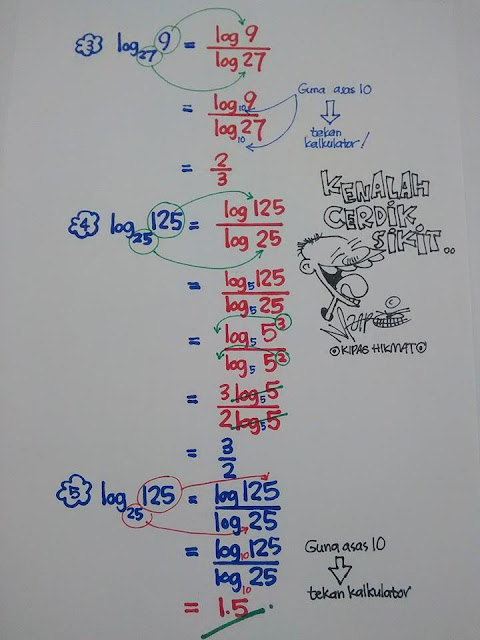 3 log₂₇ 9 = log 9 / log 27
= log₁₀ 9 / log₁₀ 27
Guna asas 10
tekan
kalkulator!
= 2/3
KENALAH
CERDIK
SIKIT..
4 log₂₅ 125 = log 125 / log 25
= log₅ 125 / log₅ 25
©
= log₅ 5³ / log₅ 5²
©KIPAS HIKMAT©
= 3 log₅ 5 / 2 log₅ 5
= 3/2
5 log₂₅ 125 = log 125 / log 25
= log₁₀ 125 / log₁₀ 25
Guna asas 10
tekan kalkulator
= 1.5